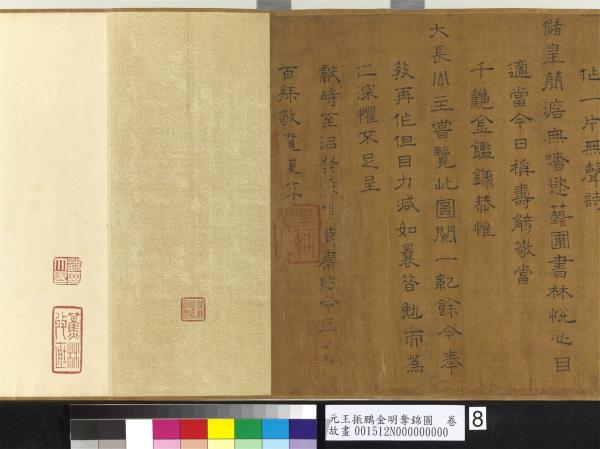 作一片無聲詩
儲皇簡澹無嗜慾藝圃書林悅心目
適當今日稱壽觴敬當
千龝金鑑錄恭惟
大長公主嘗覽此圖閱一紀餘今奉
教再作但目力減如曩昔勉而為
之深懼不足呈
獻時至治癸亥莫廩給令王
百拜敬畫謹
元王振鵬金明奪錦圖 卷
故畫 001512N000000000
8